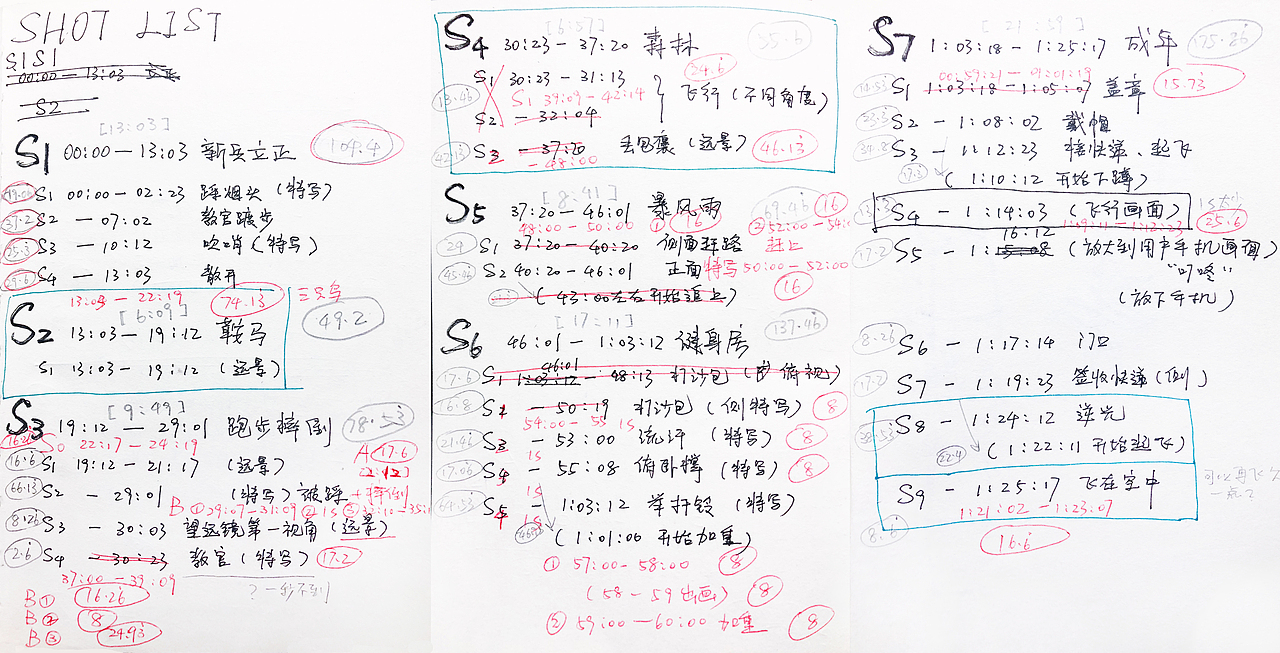 SHOT LIST
S1S1
00:00 — 13:03 立正
S2
[13:03]
S1 00:00 — 13:03 新兵立正 104.4
S1 00:00 — 02:23 踩烟头 (特写)
37.2 S2 — 07:02 教官踱步
25.3 S3 — 10:12 吹哨 (特写)
S4 — 13:03 散开
13:03 — 22:19 74.13 三只鸟
[6:09] 49.2
S2 13:03 — 19:12 鞍马
S1 13:03 — 19:12 (远景)
[9:49] 78.53
S3 19:12 — 29:01 跑步摔倒
S0 22:17 — 24:19 A 17.6
16.6 S1 19:12 — 21:17 (远景) 2:12
66.13 S2 — 29:01 (特写) 被踩 + 摔倒
B ① 29:07 — 31:09 ② 1S ③
8.26 S3 — 30:03 望远镜第一视角 (远景)
2.6 S4 — 30:23 教官 (特写) 17.2
37:00 — 39:09 ? 一秒不到
B① 16.26
B② 8
B③ 24.93
[6:57] 55.6
S4 30:23 — 37:20 森林
S1 30:23 — 31:13 24.6
13.46 S1 39:09 — 42:14 飞行 (不同角度)
S2 — 32:04
42.13 S3 — 37:20 丢包裹 (远景) 46.13
— 48:00
[8:41] 69.46
S5 37:20 — 46:01 暴风雨 16
48:00 — 50:00 ① 16 ② 52:00 — 54:00
29 S1 37:20 — 40:20 侧面赶路 赶上
45.06 S2 40:20 — 46:01 正面 特写 50:00 — 52:00
( 43:00左右开始追上 ) 16
[17:11] 137.46
S6 46:01 — 1:03:12 健身房
46:01
17.6 S1 1:03:12 — 48:13 打沙包 (俯视)
16.8 S2 — 50:19 打沙包 (侧特写) 8
54:00 — 55 1S
21.4 S3 — 53:00 (特写) 8
1S
17.06 S4 — 55:08 俯卧撑 (特写) 8
1S
64.53 S5 — 1:03:12 举杠铃 (特写)
1S
( 1:01:06 开始加重 )
① 57:00 — 58:00 8
(58 — 59 出画) 8
② 59:00 — 60:00 加重 8
[21:59] 175.86
S7 1:03:18 — 1:25:17 成年
00:59:21 — 01:01:19
S1 1:03:18 — 1:05:07 盖章 15.73
S2 — 1:08:02 戴帽
S3 — 1:12:23 接快递、起飞
17.3 ( 1:10:12 开始下蹲 )
S4 — 1:14:03 (飞行画面) 25.6
1:09:23 — 1:12:23
16:12
17.2 S5 — 1:15:08 (放大到用户手机画面)
"叮咚"
(放下手机)
8.26 S6 — 1:17:14 门口
17.2 S7 — 1:19:23 签收快递 (侧)
38.53 S8 — 1:24:12 逆光
22.4 ( 1:22:11 开始起飞 )
S9 — 1:25:17 飞在空中
1:21:02 — 1:23:07
8.6 16.6
可以再飞久
一点?